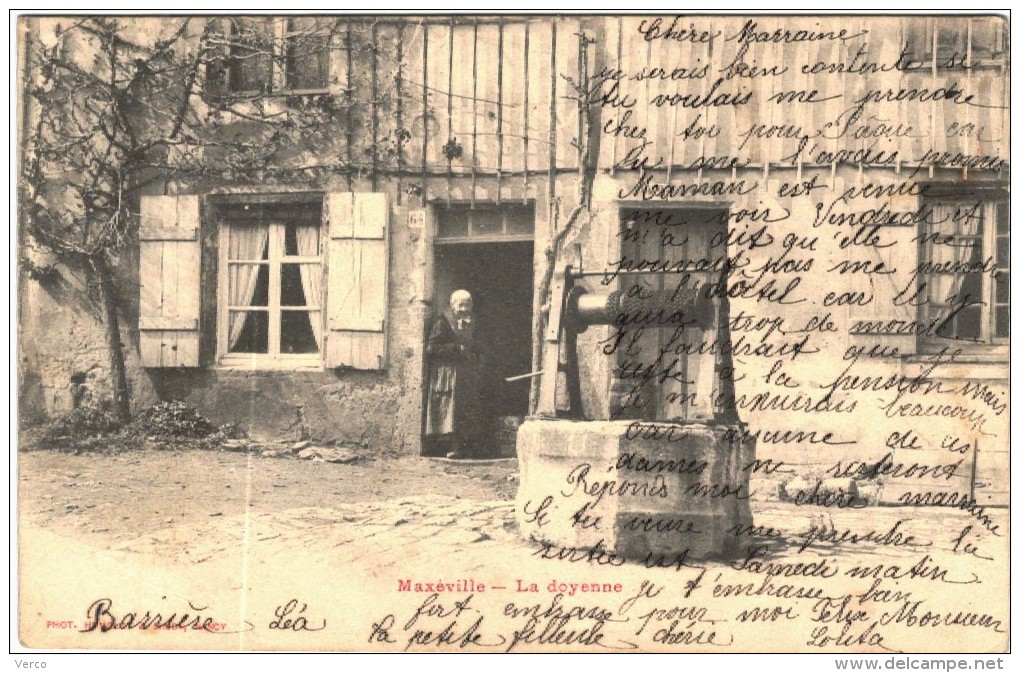 Chère Marraine
je serais bien contente si
tu voulais me prendre
chez toi pour Pâque car
tu me l'avais promis
Maman est venue
me voir Vendredi et
m'a dit qu'elle ne
pouvait pas me prendre
à l'hôtel car il y
aura trop de monde
Il faudrait que je
reste à la pension mais
je m'ennuirais beaucoup
car aucune de ces
dames ne resteront
Réponds moi chère marraine
Si tu veux me prendre la
sortie est Samedi matin
je t'embrasse bien
fort embrasse pour moi Félix Monsieur
la petite filleule chérie Lolita
64
Maxéville — La doyenne
PHOT. NANCY
Barrière Léa
Verco
www.delcampe.net